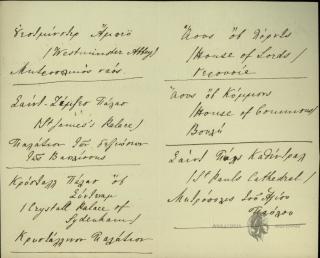 Ουεστμίνστερ Άμπεϋ
(Westminster Abbey)
Μητροπολικός ναός
Σαίντ-Τζέιμσες Πάλας
(St James's Palace)
Παλάτιον τῶν
τῆς Βασιλίσσης
Κρύσταλ Πάλας ὄβ
Σύντναμ
(Crystall Palace of
Sydenham)
Κρυστάλλινον Παλάτιον
Χάους ὄβ Λόρντς
(House of Lords)
Γερουσία
Χάους ὄβ Κόμμονς
(House of Commons)
Βουλή
Σαίντ Πὼλς Καθίντραλ
(St Pauls Cathedral)
Μητρόπολις τοῦ Ἁγίου
Παύλου